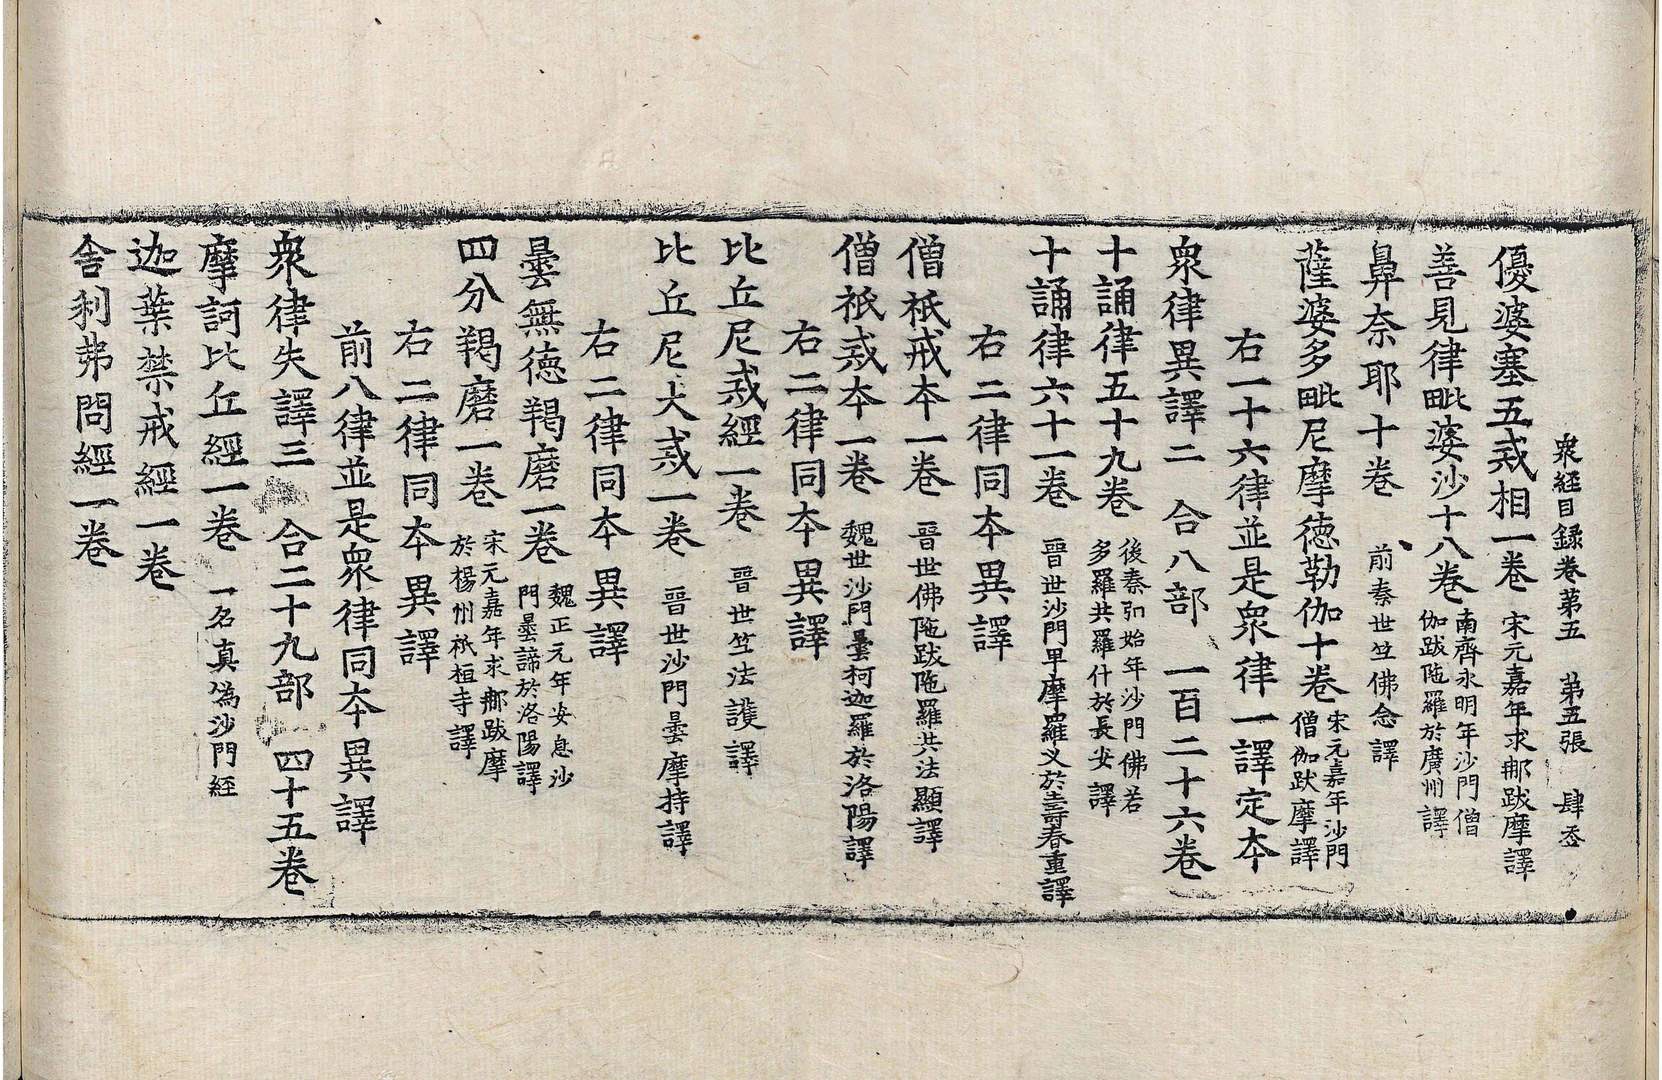 衆經目録卷第五 第五張 肆𠫤
優婆塞五戒相一卷 宋元嘉年求𨚗跋摩譯
善見律毗婆沙十八卷 南齊永明年沙門僧
伽跋陁羅於廣州譯
鼻奈耶十卷 前秦世竺佛念譯
薩婆多毗尼摩德勒伽十卷 宋元嘉年沙門
僧伽跋摩譯
右一十六律並是衆律一譯定本
衆律異譯二 合八部 一百二十六卷
十誦律五十九卷 後秦弘始年沙門佛若
多羅共羅什於長安譯
十誦律六十一卷 晉世沙門卑摩羅叉於壽春重譯
右二律同本異譯
僧祇戒本一卷 晉世佛陁跋陁羅共法顯譯
僧祇戒本一卷 魏世沙門曇柯迦羅於洛陽譯
右二律同本異譯
比丘尼戒經一卷 晉世竺法護譯
比丘尼大戒一卷 晉世沙門曇摩持譯
右二律同本異譯
曇無德羯磨一卷 魏正元年安息沙
門曇諦於洛陽譯
四分羯磨一卷 宋元嘉年求𨚗跋摩
於楊州祇桓寺譯
右二律同本異譯
前八律並是衆律同本異譯
衆律失譯三 合二十九部 四十五卷
摩訶比丘經一卷 一名真偽沙門經
迦葉禁戒經一卷
舍利弗問經一卷